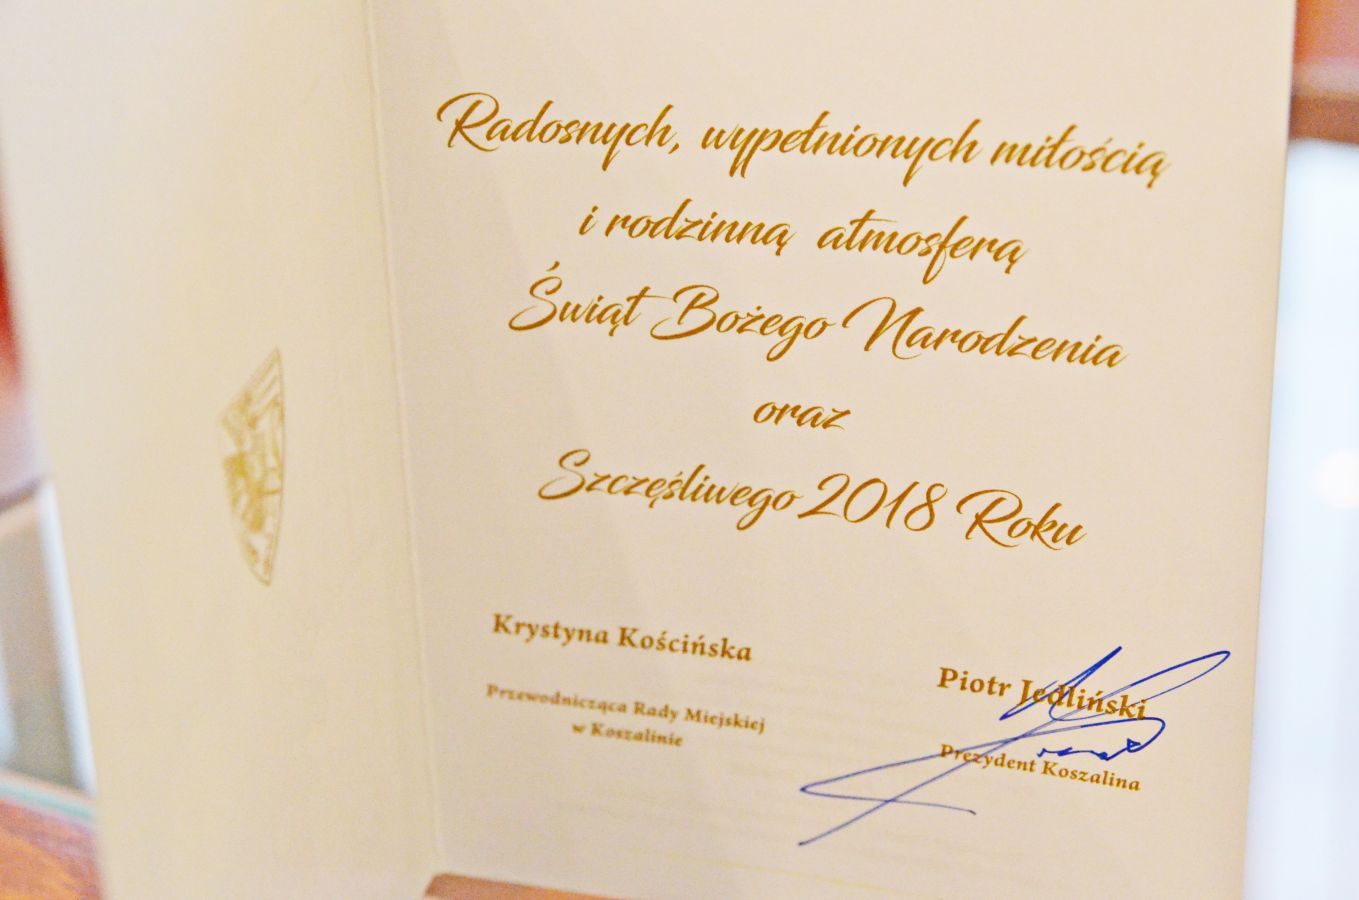 Radosnych, wypełnionych miłością
i rodzinną atmosferą
Świąt Bożego Narodzenia
oraz
Szczęśliwego 2018 Roku
Krystyna Kościńska
Przewodnicząca Rady Miejskiej
w Koszalinie
Piotr Jedliński
Prezydent Koszalina